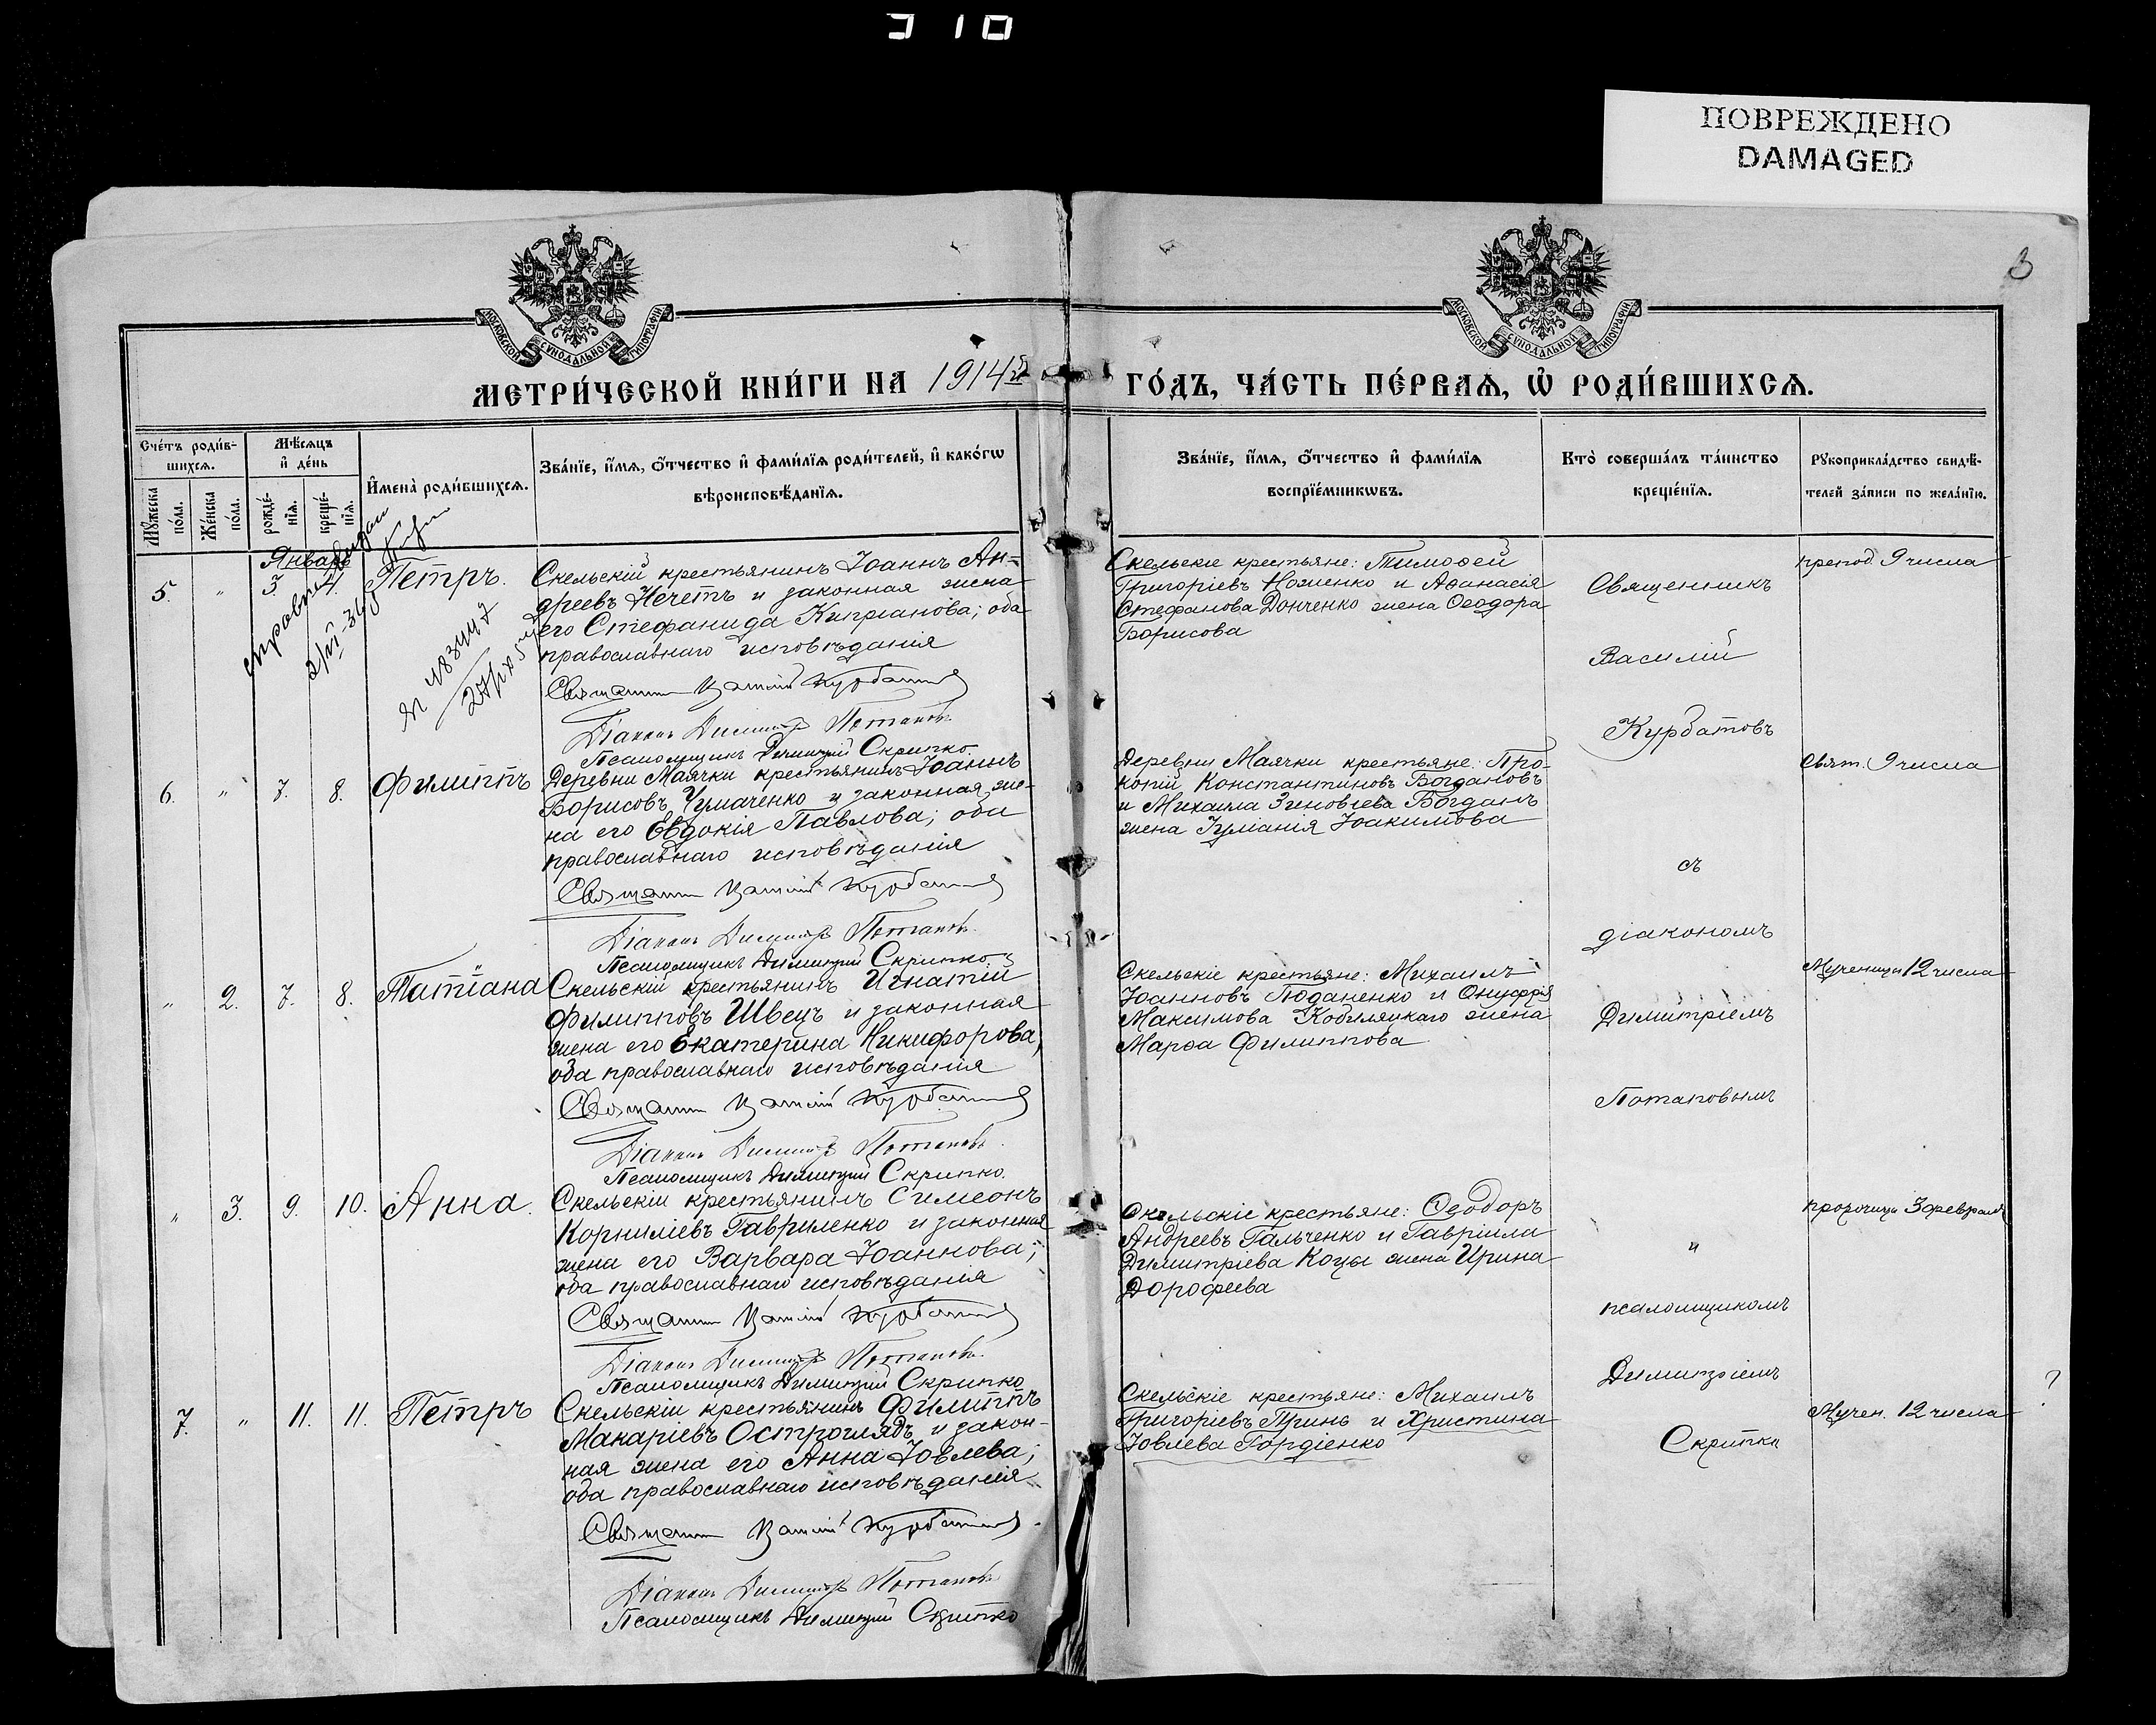 310
ПОВРЕЖДЕНО
DAMAGED
3
МОСКОВСКОЙ СУНОДАЛЬНОЙ ТИПОГРАФІИ
МОСКОВСКОЙ СУНОДАЛЬНОЙ ТИПОГРАФІИ
МЕТРИ́ЧЕСКОЙ КНИ́ГИ НА 1914й ГО́ДЪ, ЧА́СТЬ ПЕ́РВАѦ, Ѡ҆ РОДИ́ВШИХСѦ.
Сче́тъ роди́в-
шихсѧ.
Мѣ́сѧцъ
и҆ де́нь
И҆мена̀ роди́вшихсѧ.
Зва́нїе, и҆́мѧ, ѻ҆́тчество и҆ фами́лїѧ роди́телей, и҆ како́гѡ
вѣроисповѣ́данїѧ.
Мꙋ́жеска
по́ла.
Же́нска
по́ла.
рожде́-
нїѧ.
креще́-
нїѧ.
Зва́нїе, и҆́мѧ, ѻ҆́тчество и҆ фами́лїѧ
воспрїе́мникѡвъ.
Кто̀ соверша́лъ та́инство
креще́нїѧ.
Рꙋкоприкла́дство свидѣ́-
телей за́писи по жела́нїю.
Январь
5. " 3. 4. Петръ.
Скельскій крестьянинъ Іоаннъ Ан-
дреевъ Нечетъ и законная жена
его Стефанида Кипріанова; оба
православнаго исповѣданія
Священникъ Василій Курбатовъ
Діаконъ Димитрій Потаповъ
Псаломщикъ Димитрій Скрипко.
Скельскіе крестьяне: Тимофей
Григоріевъ Ноженко и Афанасія
Стефанова Донченко жена Ѳеодора
Борисова
препод. 9 числа
6. " 7. 8. Филиппъ
Деревни Маячки крестьянинъ Іоаннъ
Борисовъ Чумаченко и законная же-
на его Евдокія Павлова; оба
православнаго исповѣданія
Священникъ Василій Курбатовъ
Діаконъ Димитрій Потаповъ
Псаломщикъ Димитрій Скрипко
Деревни Маячки крестьяне: Про-
копій Константиновъ Богдановъ
и Михаила Зиновіева Богданъ
жена Іуліанія Іоакимова
Свят. 9 числа
" 2. 7. 8. Татіана
Скельскій крестьянинъ Игнатій
Филипповъ Швецъ и законная
жена его Екатерина Никифорова;
оба православнаго исповѣданія
Священникъ Василій Курбатовъ
Діаконъ Димитрій Потаповъ
Псаломщикъ Димитрій Скрипко.
Скельскіе крестьяне: Михаилъ
Іоанновъ Поданенко и Онуфрія
Максимова Кобиляцкаго жена
Марѳа Филиппова
Мученицы 12 числа
" 3. 9. 10. Анна.
Скельскій крестьянинъ Симеонъ
Корниліевъ Гавриленко и законная
жена его Варвара Іоаннова;
оба православнаго исповѣданія
Священникъ Василій Курбатовъ
Діаконъ Димитрій Потаповъ
Псаломщикъ Димитрій Скрипко
Скельскіе крестьяне: Ѳеодоръ
Андреевъ Гальченко и Гавріила
Димитріева Коцы жена Ирина
Дорофеева
пророчицы 3 февраля
7. " 11. 11. Петръ
Скельскій крестьянинъ Филиппъ
Макаріевъ Остроглядъ и закон-
ная жена его Анна Іовлева;
оба православнаго исповѣданія
Священникъ Василій Курбатовъ
Діаконъ Димитрій Потаповъ
Псаломщикъ Димитрій Скрипко
Скельскіе крестьяне: Михаилъ
Григоріевъ Тринь и Христина
Іовлева Гордіенко
Мучен. 12 числа
?
Священникъ
Василій
Курбатовъ
съ
діакономъ
Димитріемъ
Потаповымъ
и
псаломщикомъ
Димитріемъ
Скрипко